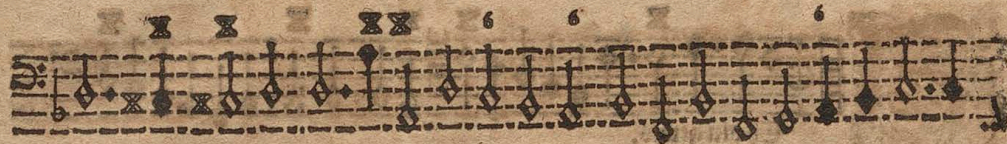 6 6 6